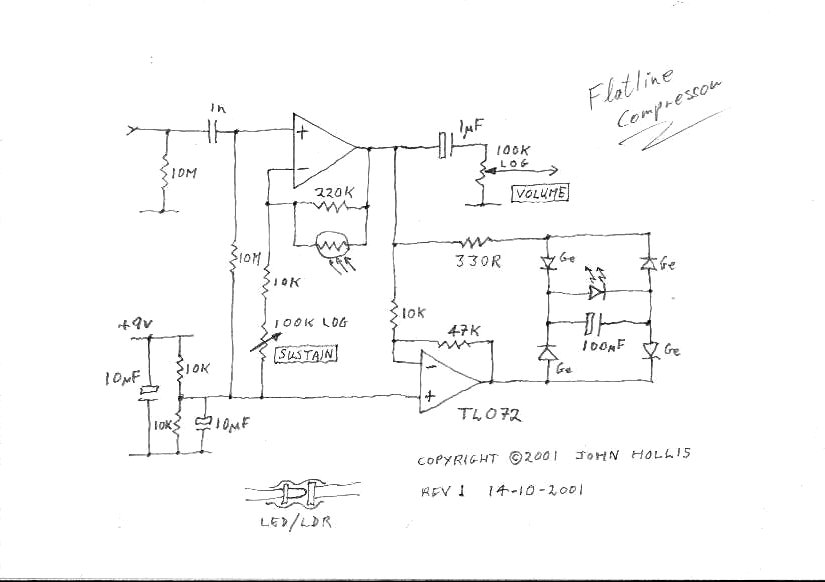 Flatline
Compressor
1n
1µF
100K
LOG
VOLUME
10M
+
−
220K
10M
10K
330R
Ge
Ge
100K LOG
SUSTAIN
10K
47K
100µF
+9V
10µF
10K
−
+
Ge
Ge
10K
10µF
TL072
COPYRIGHT ©2001 JOHN HOLLIS
REV 1 14-10-2001
LED/LDR